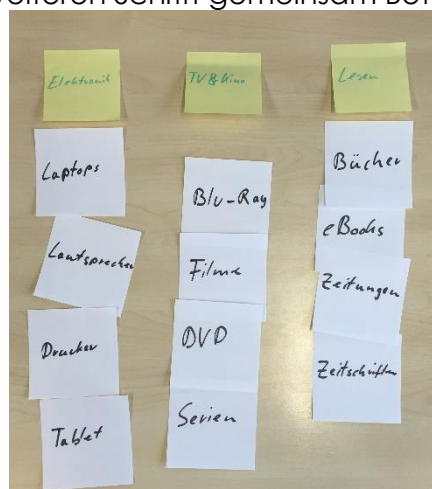 Elektronik
Laptops
Lautsprecher
Drucker
Tablet
TV & Kino
Blu-Ray
Filme
DVD
Serien
Lesen
Bücher
eBooks
Zeitungen
Zeitschriften